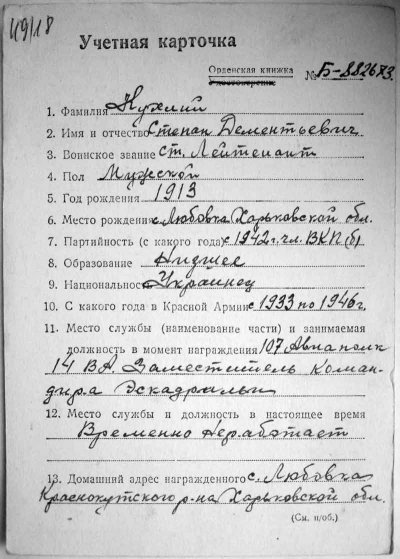 49/18
Учетная карточка
Орденская книжка
Удостоверение
№ Б-882673
1. Фамилия Кухлий
2. Имя и отчество Степан Дементьевич
3. Воинское звание Ст. Лейтенант
4. Пол Мужской
5. Год рождения 1913
6. Место рождения с. Любовка Харьковской обл.
7. Партийность (с какого года) с 1942 г. чл. ВКП(б)
8. Образование Низшее
9. Национальность Украинец
10. С какого года в Красной Армии с 1933 по 1946 г.
11. Место службы (наименование части) и занимаемая
должность в момент награждения 107 Авиаполк
14 ВА, Заместитель Коман-
дира Эскадрильи
12. Место службы и должность в настоящее время
Временно Неработает
13. Домашний адрес награжденного с. Любовка
Краснокутского р-на Харьковской обл.
(См. н/об.)